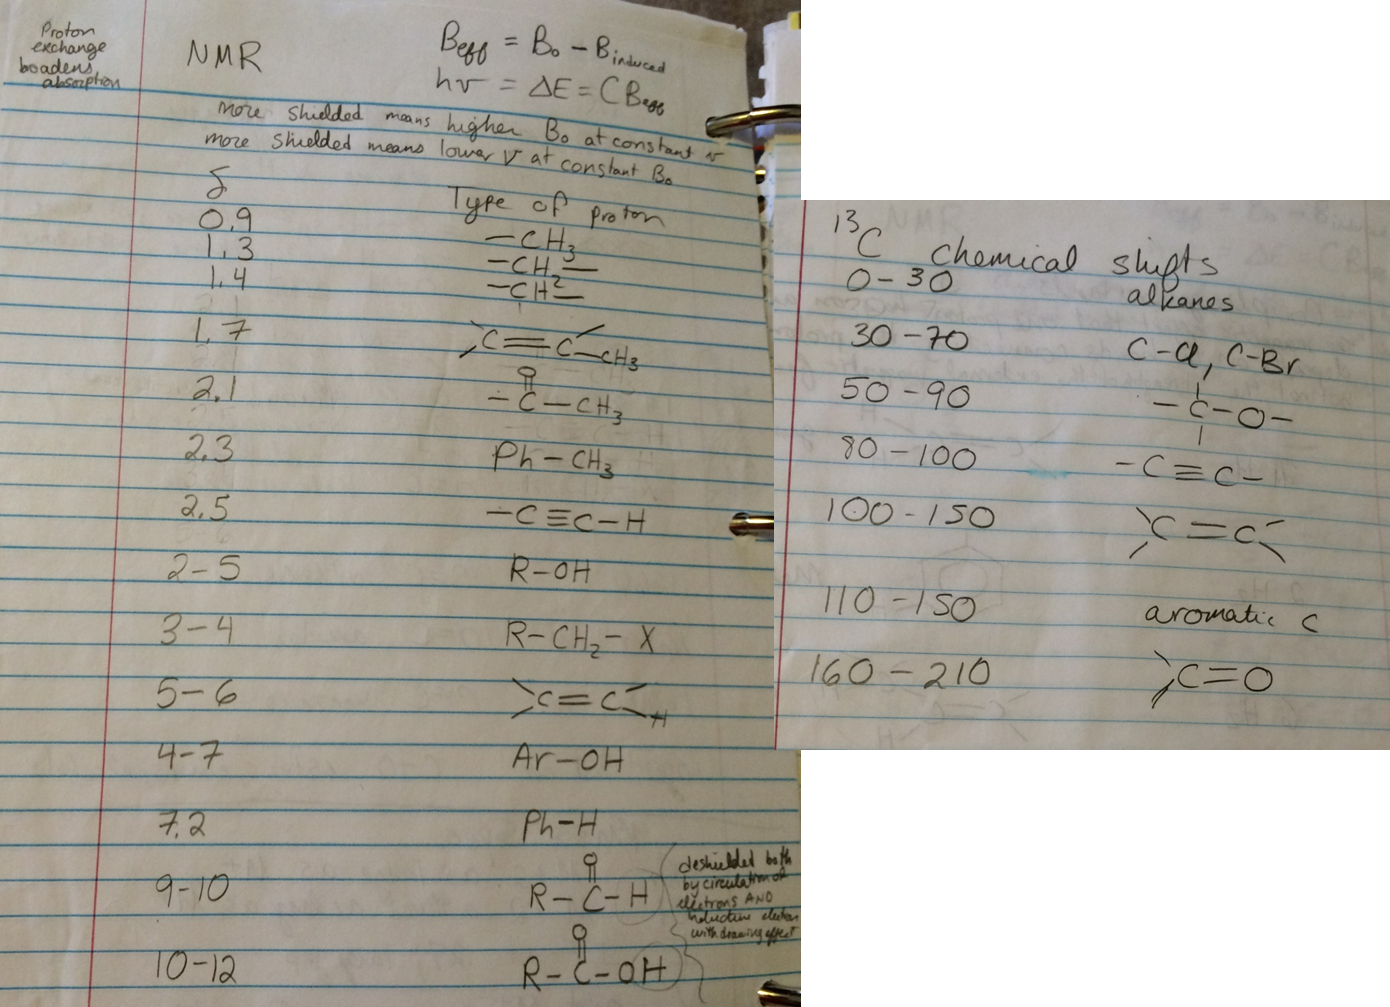 Proton
exchange
boadens
absorption
NMR
Beff = B₀ − Binduced
hν = ΔE = CBeff
more shielded means higher B₀ at constant ν
more shielded means lower ν at constant B₀
δ
Type of proton
0.9 −CH₃
1.3 −CH₂−
1.4 −CH−
1.7 C=C−CH₃
2.1 O
−C−CH₃
2.3 Ph−CH₃
2.5 −C≡C−H
2−5 R−OH
3−4 R−CH₂−X
5−6 C=C−H
4−7 Ar−OH
7.2 Ph−H
9−10 O
R−C−H
10−12 O
R−C−OH
deshielded both
by circulation of
electrons AND
inductive electron
withdrawing effect
¹³C chemical shifts
0−30 alkanes
30−70 C−Cl, C−Br
50−90 −C−O−
80−100 −C≡C−
100−150 C=C
110−150 aromatic C
160−210 C=O